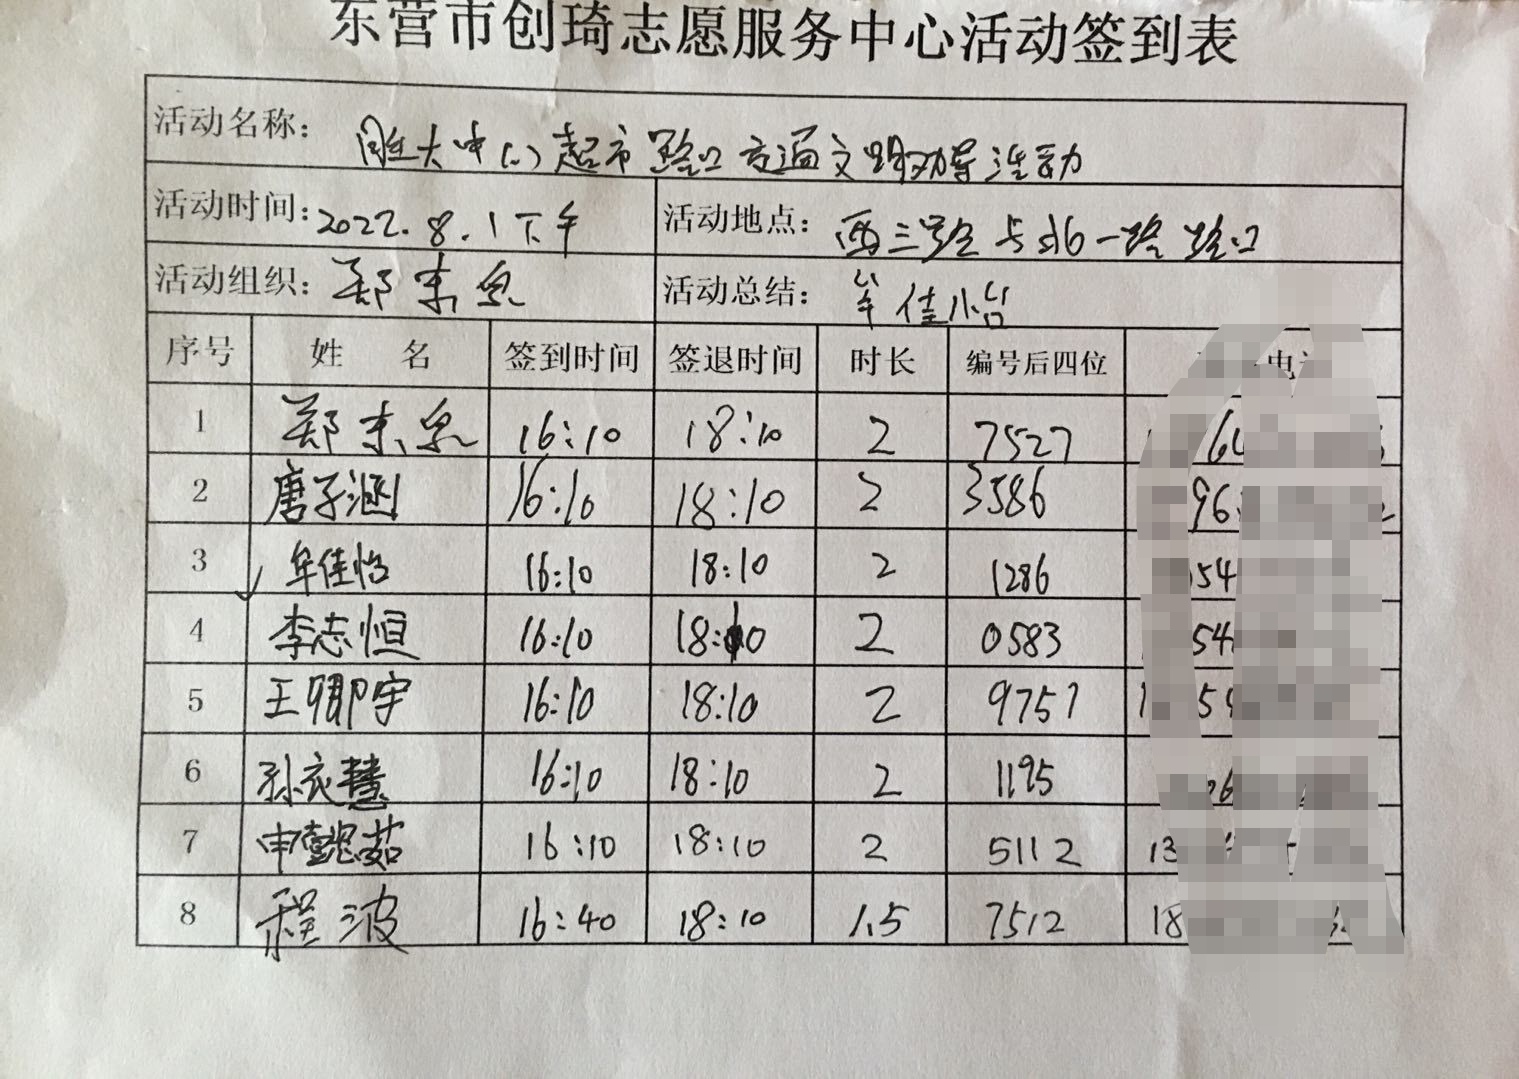 东营市创琦志愿服务中心活动签到表
活动名称: 胜大中心超市路口交通文明劝导活动
活动时间: 2022.8.1下午 活动地点: 西三路与北一路路口
活动组织: 郑東泉 活动总结: 牟佳怡
序号 姓名 签到时间 签退时间 时长 编号后四位 电
1 郑東泉 16:10 18:10 2 7527
2 唐子涵 16:10 18:10 2 3586
3 牟佳怡 16:10 18:10 2 1286
4 李志恒 16:10 18:10 2 0583
5 王卿宇 16:10 18:10 2 9757
6 孙衣慧 16:10 18:10 2 1195
7 申懿茹 16:10 18:10 2 5112 13
8 程波 16:40 18:10 1.5 7512 18